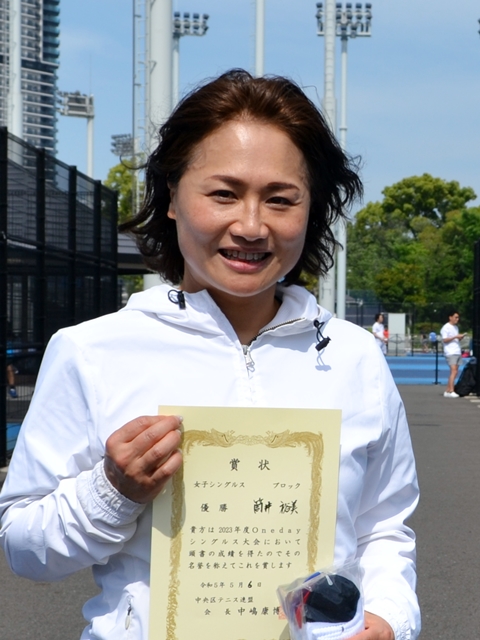 賞状
女子シングルス ブロック
優勝 筒井 裕美
貴方は2023年度Oneday
シングルス大会において
頭書の成績を得たのでその
名誉を称えてこれを賞します
令和5年5月6日
中央区テニス連盟
会長 中嶋康博